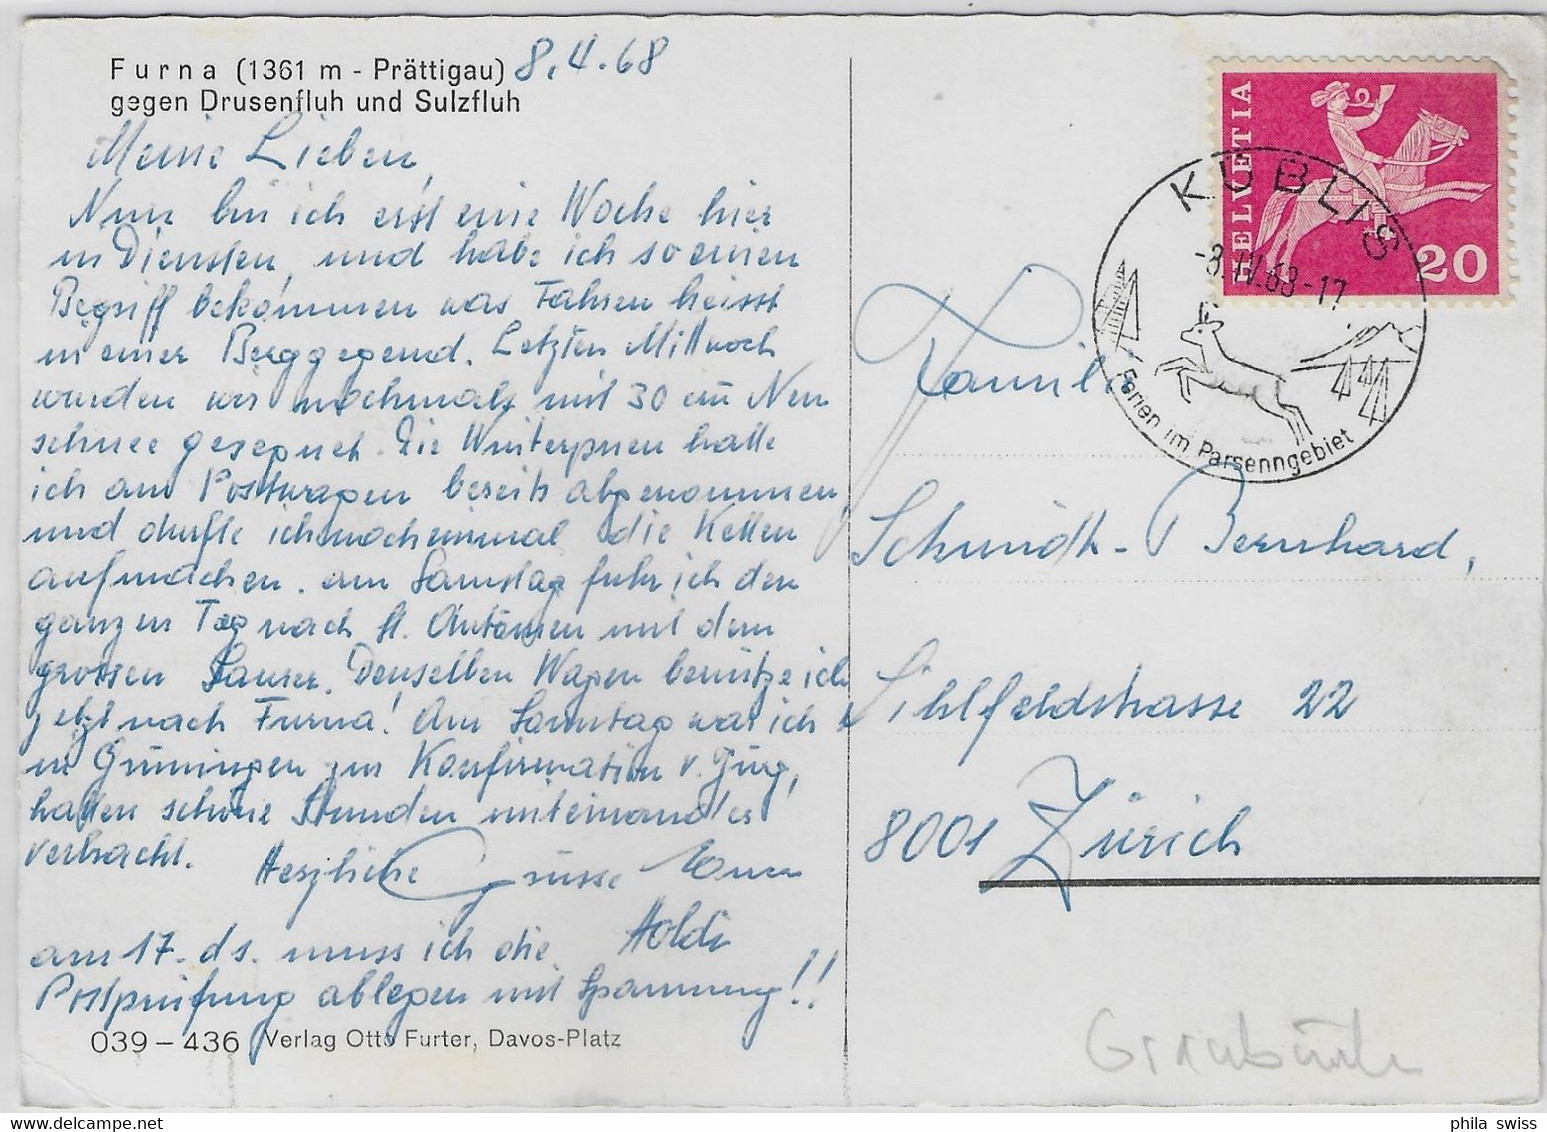 Furna (1361 m - Prättigau) 8.4.68
gegen Drusenfluh und Sulzfluh
Meine Lieben,
Nun bin ich erst eine Woche hier
in Diensten, und habe ich so einen
Begriff bekommen was Fahren heisst
in einer Berggegend. Letzten Mittwoch
wurden wir nochmals mit 30 cm Neu
schnee gesegnet. Die Winterpneu hatte
ich am Postwagen bereits abgenommen,
und durfte ich nocheinmal die Ketten
aufmachen. am Samstag fuhr ich den
ganzen Tag nach St. Antönien mit dem
grossen Saurer. Denselben Wagen benütze ich
jetzt nach Furna! Am Samstag war ich
in Grüningen zur Konfirmation v. Jürg,
hatten schöne Stunden miteinander
verbracht. Herzliche Grüsse Euer
Noldi
am 17. ds. muss ich die
Postprüfung ablegen mit Spannung!!
039 – 436 Verlag Otto Furter, Davos-Platz
HELVETIA
20
KÜBLIS
-8.IV.68-17
Ferien im Parsenngebiet
Familie
Schmidt-Bernhard,
Sihlfeldstrasse 22
8001 Zürich
Graubünden
phila swiss